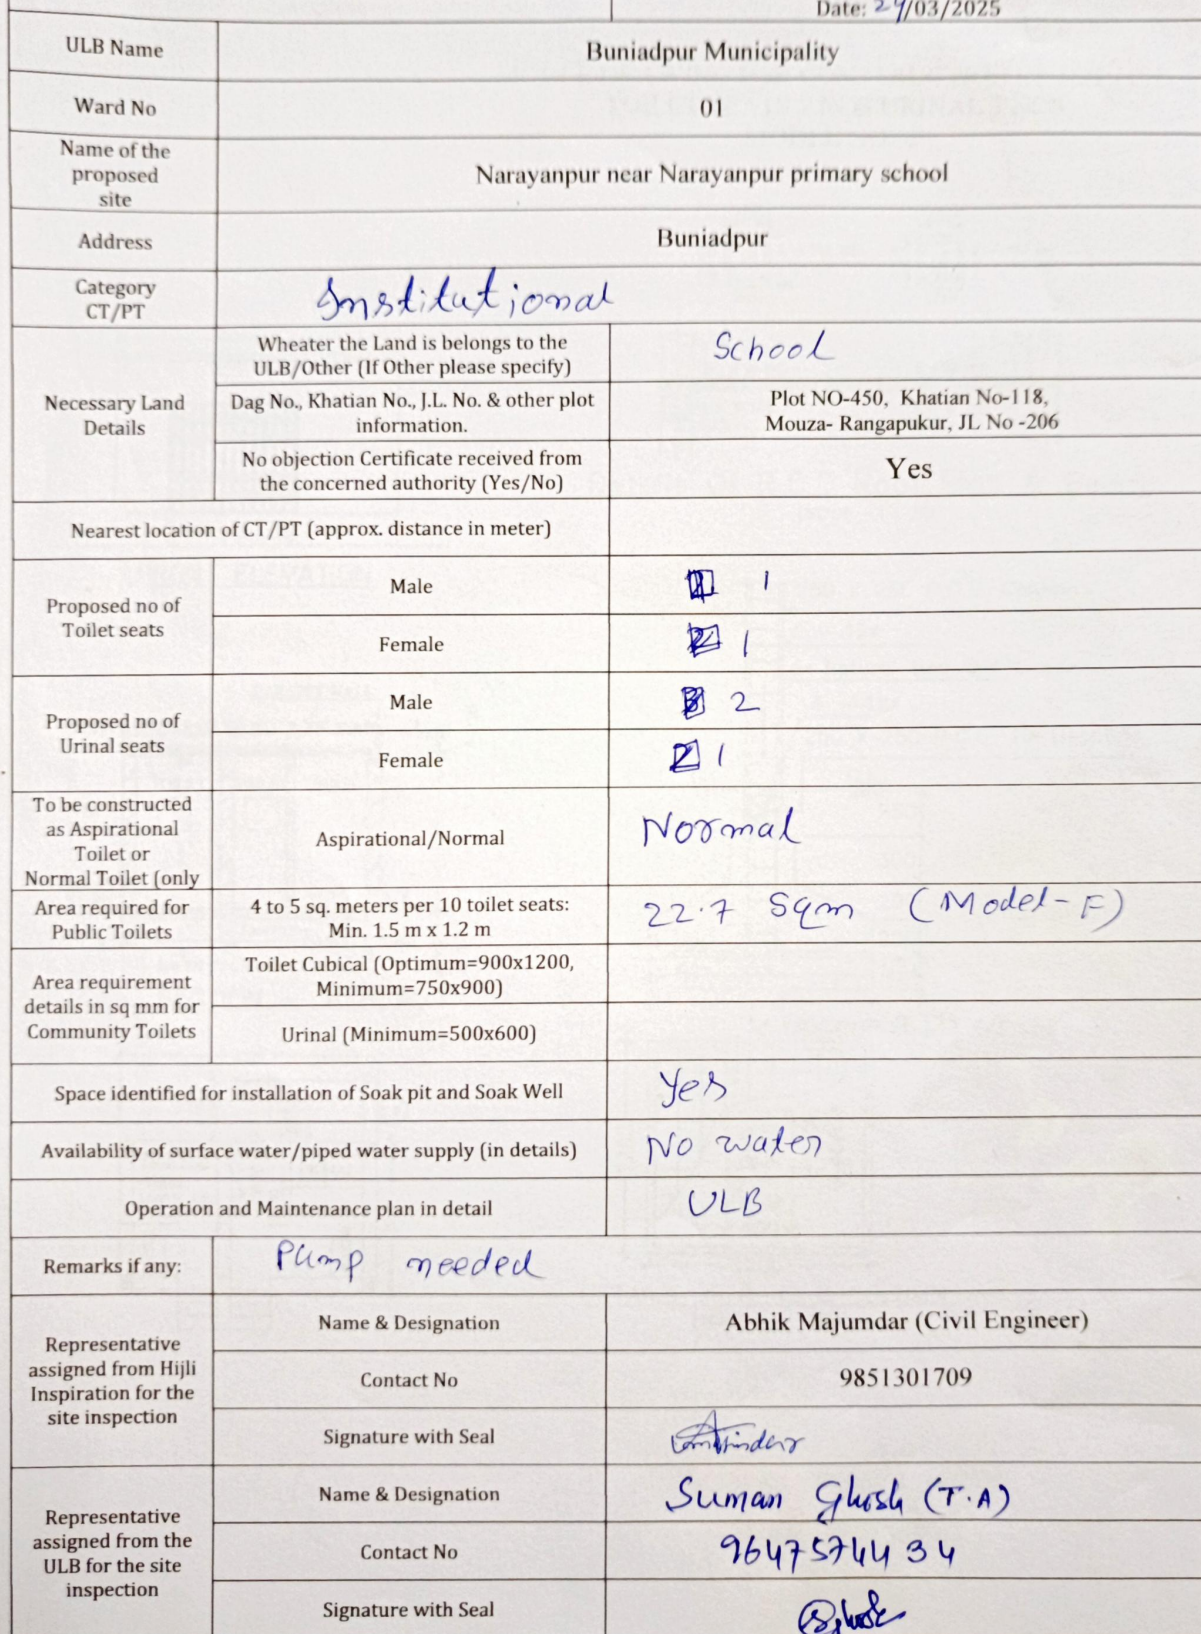 Date: 24/03/2025
ULB Name
Buniadpur Municipality
Ward No
01
Name of the
proposed
site
Narayanpur near Narayanpur primary school
Address
Buniadpur
Category
CT/PT
Institutional
Necessary Land
Details
Wheater the Land is belongs to the
ULB/Other (If Other please specify)
School
Dag No., Khatian No., J.L. No. & other plot
information.
Plot NO-450, Khatian No-118,
Mouza- Rangapukur, JL No -206
No objection Certificate received from
the concerned authority (Yes/No)
Yes
Nearest location of CT/PT (approx. distance in meter)
Proposed no of
Toilet seats
Male
1
Female
1
Proposed no of
Urinal seats
Male
2
Female
1
To be constructed
as Aspirational
Toilet or
Normal Toilet (only
Aspirational/Normal
Normal
Area required for
Public Toilets
4 to 5 sq. meters per 10 toilet seats:
Min. 1.5 m x 1.2 m
22.7 Sqm (Model-F)
Area requirement
details in sq mm for
Community Toilets
Toilet Cubical (Optimum=900x1200,
Minimum=750x900)
Urinal (Minimum=500x600)
Space identified for installation of Soak pit and Soak Well
Yes
Availability of surface water/piped water supply (in details)
No water
Operation and Maintenance plan in detail
ULB
Remarks if any:
Pump needed
Representative
assigned from Hijli
Inspiration for the
site inspection
Name & Designation
Abhik Majumdar (Civil Engineer)
Contact No
9851301709
Signature with Seal
Representative
assigned from the
ULB for the site
inspection
Name & Designation
Suman Ghosh (T.A)
Contact No
9647574434
Signature with Seal